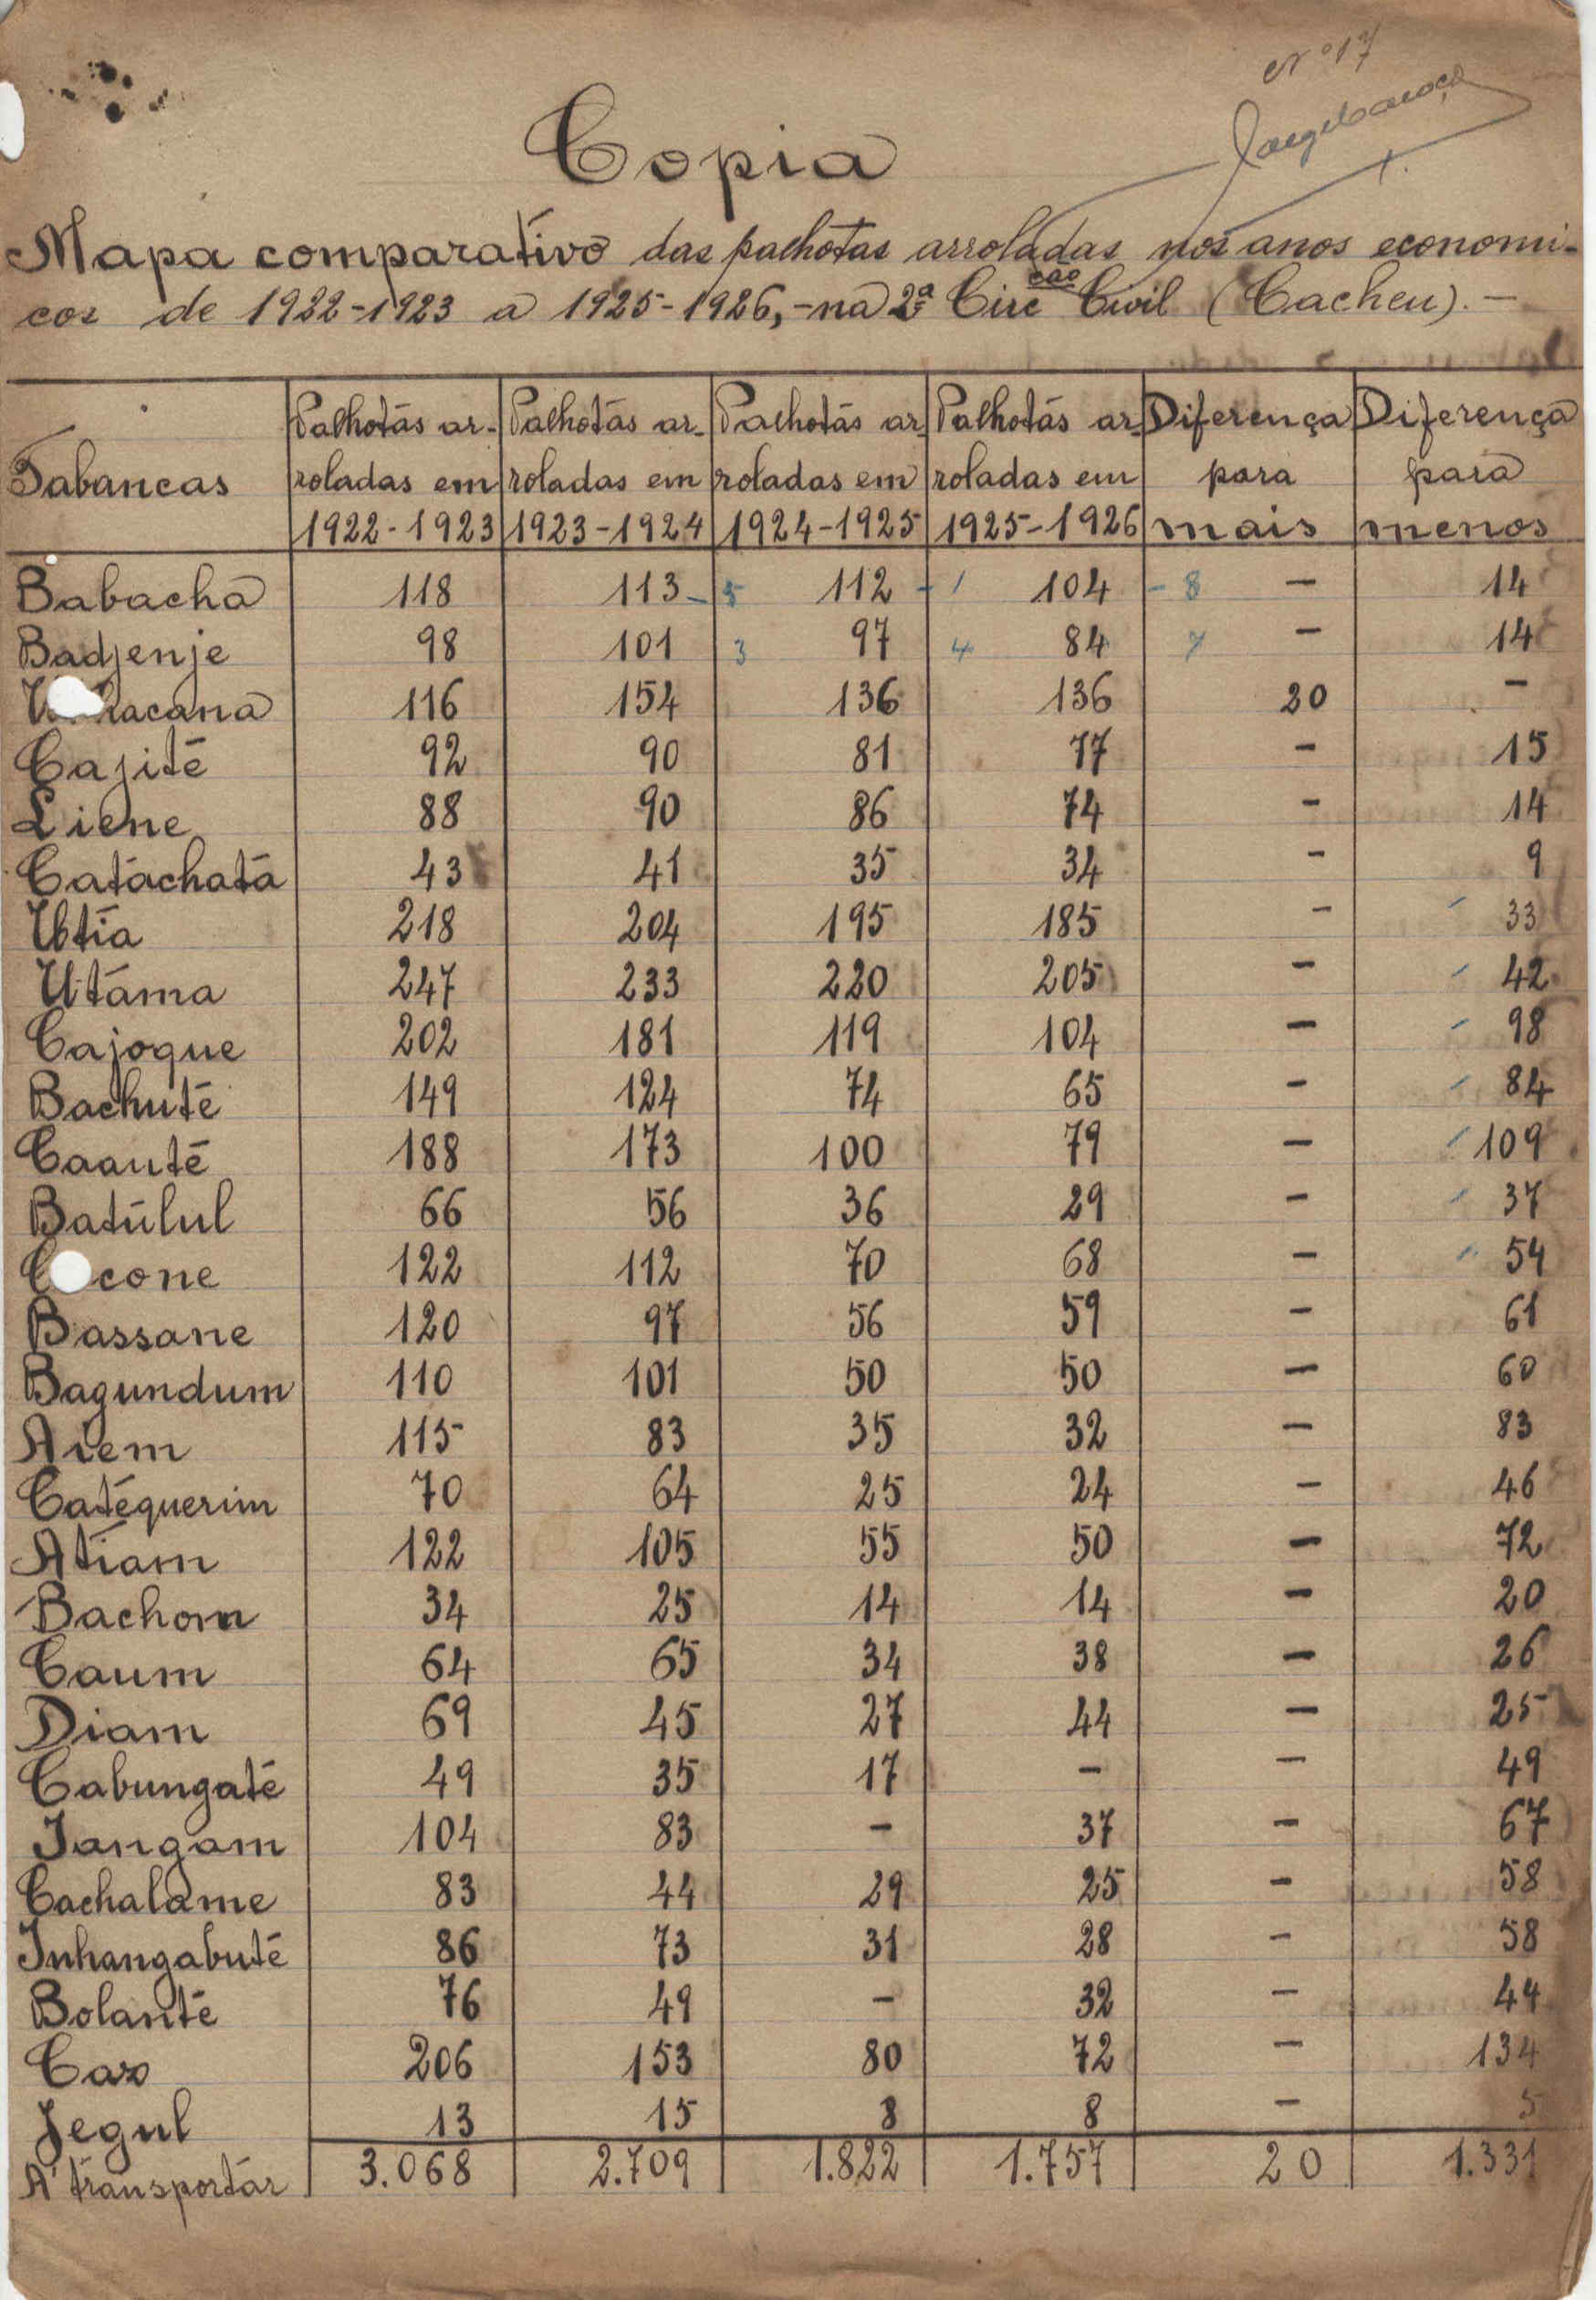 Nº 17
Copia
Mapa comparativo das palhotas arroladas nos anos economi-
cos de 1922-1923 a 1925-1926,-na 2ª Circção Civil (Cacheu).-
Tabancas | Palhotás ar-roladas em 1922-1923 | Palhotás ar-roladas em 1923-1924 | Palhotás ar-roladas em 1924-1925 | Palhotás ar-roladas em 1925-1926 | Diferença para mais | Diferença para menos
Babacha 118 113 - 5 112 - 1 104 - 8 - 14
Badjenje 98 101 3 97 4 84 7 - 14
116 154 136 136 20 -
Cajité 92 90 81 77 - 15
Liene 88 90 86 74 - 14
Catáchatá 43 41 35 34 - 9
Ubtia 218 204 195 185 - 33
Utáma 247 233 220 205 - 42
Cajoque 202 181 119 104 - 98
Bachuté 149 124 74 65 - 84
Caauté 188 173 100 79 - 109
Batúlul 66 56 36 29 - 37
cone 122 112 70 68 - 54
Bassane 120 97 56 59 - 61
Bagundum 110 101 50 50 - 60
Aiem 115 83 35 32 - 83
Catéquerim 70 64 25 24 - 46
Atiam 122 105 55 50 - 72
Bachom 34 25 14 14 - 20
Caum 64 65 34 38 - 26
Diam 69 45 27 44 - 25
Cabungaté 49 35 17 - - 49
Jangam 104 83 - 37 - 67
Cachalame 83 44 29 25 - 58
Inhangabuté 86 73 31 28 - 58
Bolanté 76 49 - 32 - 44
Caio 206 153 80 72 - 134
Jegul 13 15 8 8 - 5
A' transportár 3.068 2.709 1.822 1.757 20 1.331